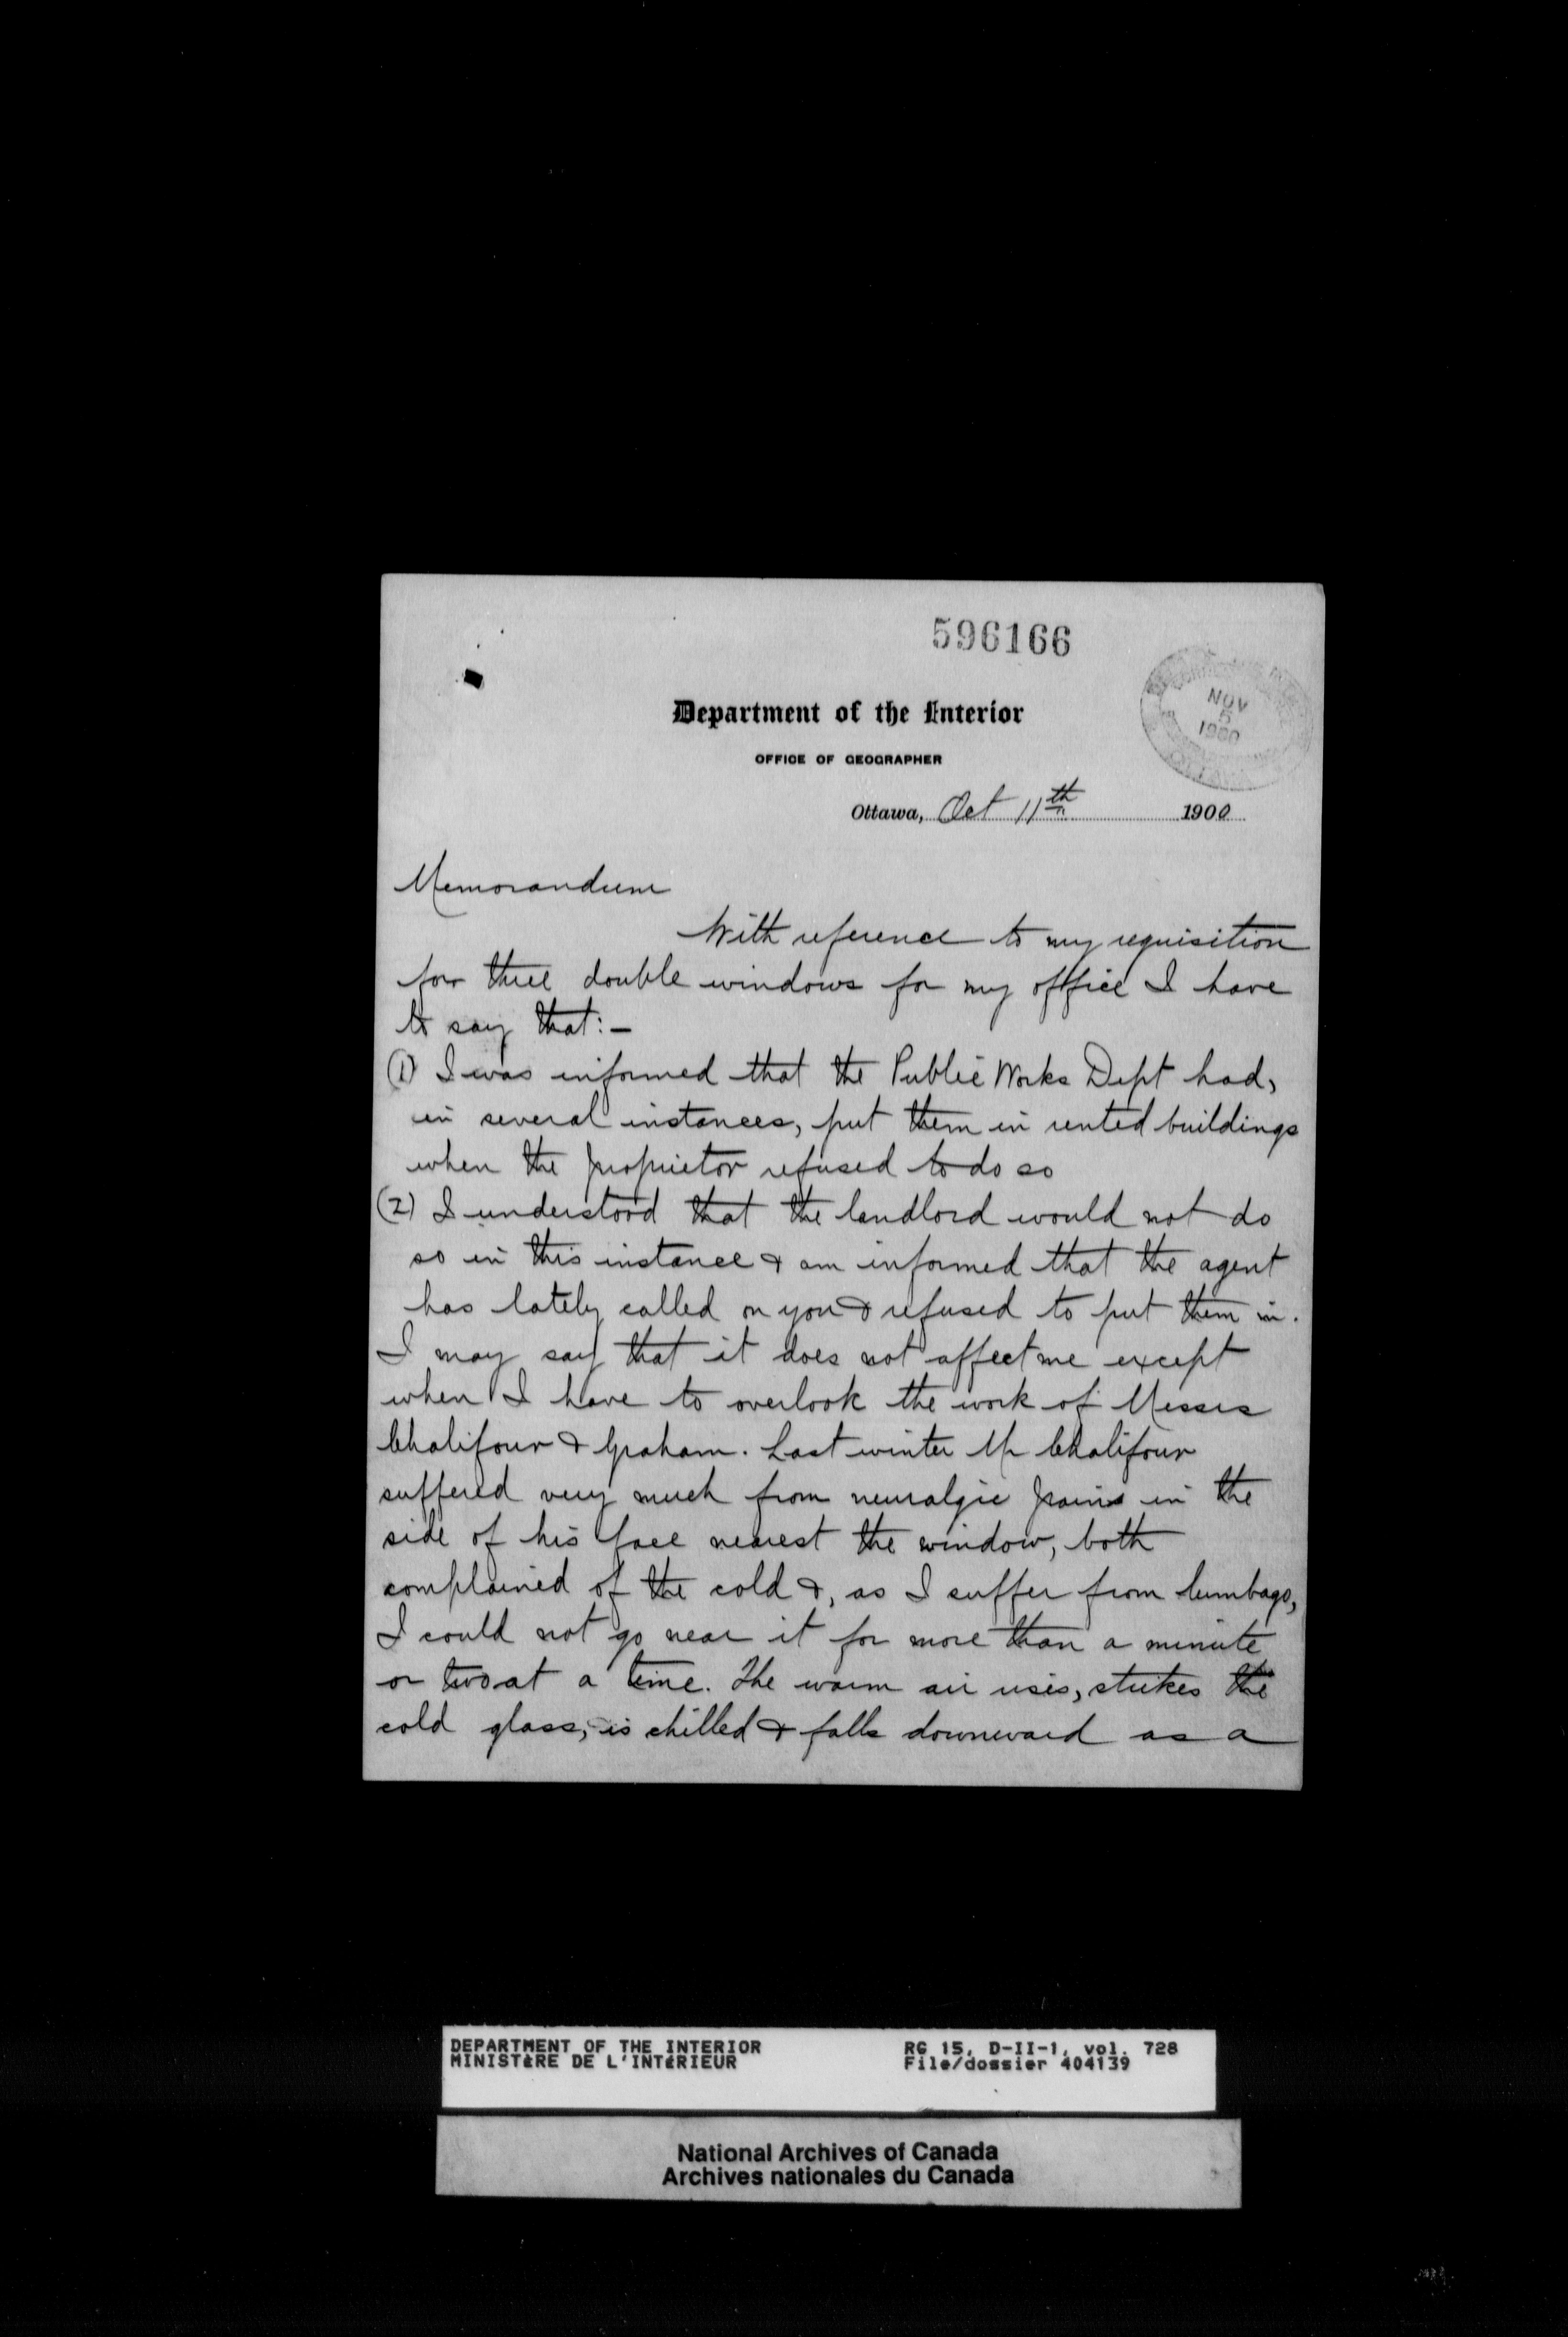 596166
NOV
5
1900
Department of the Interior
OFFICE OF GEOGRAPHER
Ottawa, Oct 11th 1900
Memorandum
With reference to my requisition
for three double windows for my office I have
to say that:-
(1) I was informed that the Public Works Dept had,
in several instances, put them in rented buildings
when the proprietor refused to do so
(2) I understood that the landlord would not do
so in this instance & am informed that the agent
has lately called on you & refused to put them in.
I may say that it does not affect me except
when I have to overlook the work of Messrs
Chalifour & Graham. Last winter Mr Chalifour
suffered very much from neuralgic pains in the
side of his face nearest the window, both
complained of the cold &, as I suffer from lumbago,
I could not go near it for more than a minute
or two at a time. The warm air rises, strikes the
cold glass, is chilled & falls downward as a
DEPARTMENT OF THE INTERIOR RG 15, D-II-1, vol. 728
MINISTÈRE DE L'INTÉRIEUR File/dossier 404139
National Archives of Canada
Archives nationales du Canada